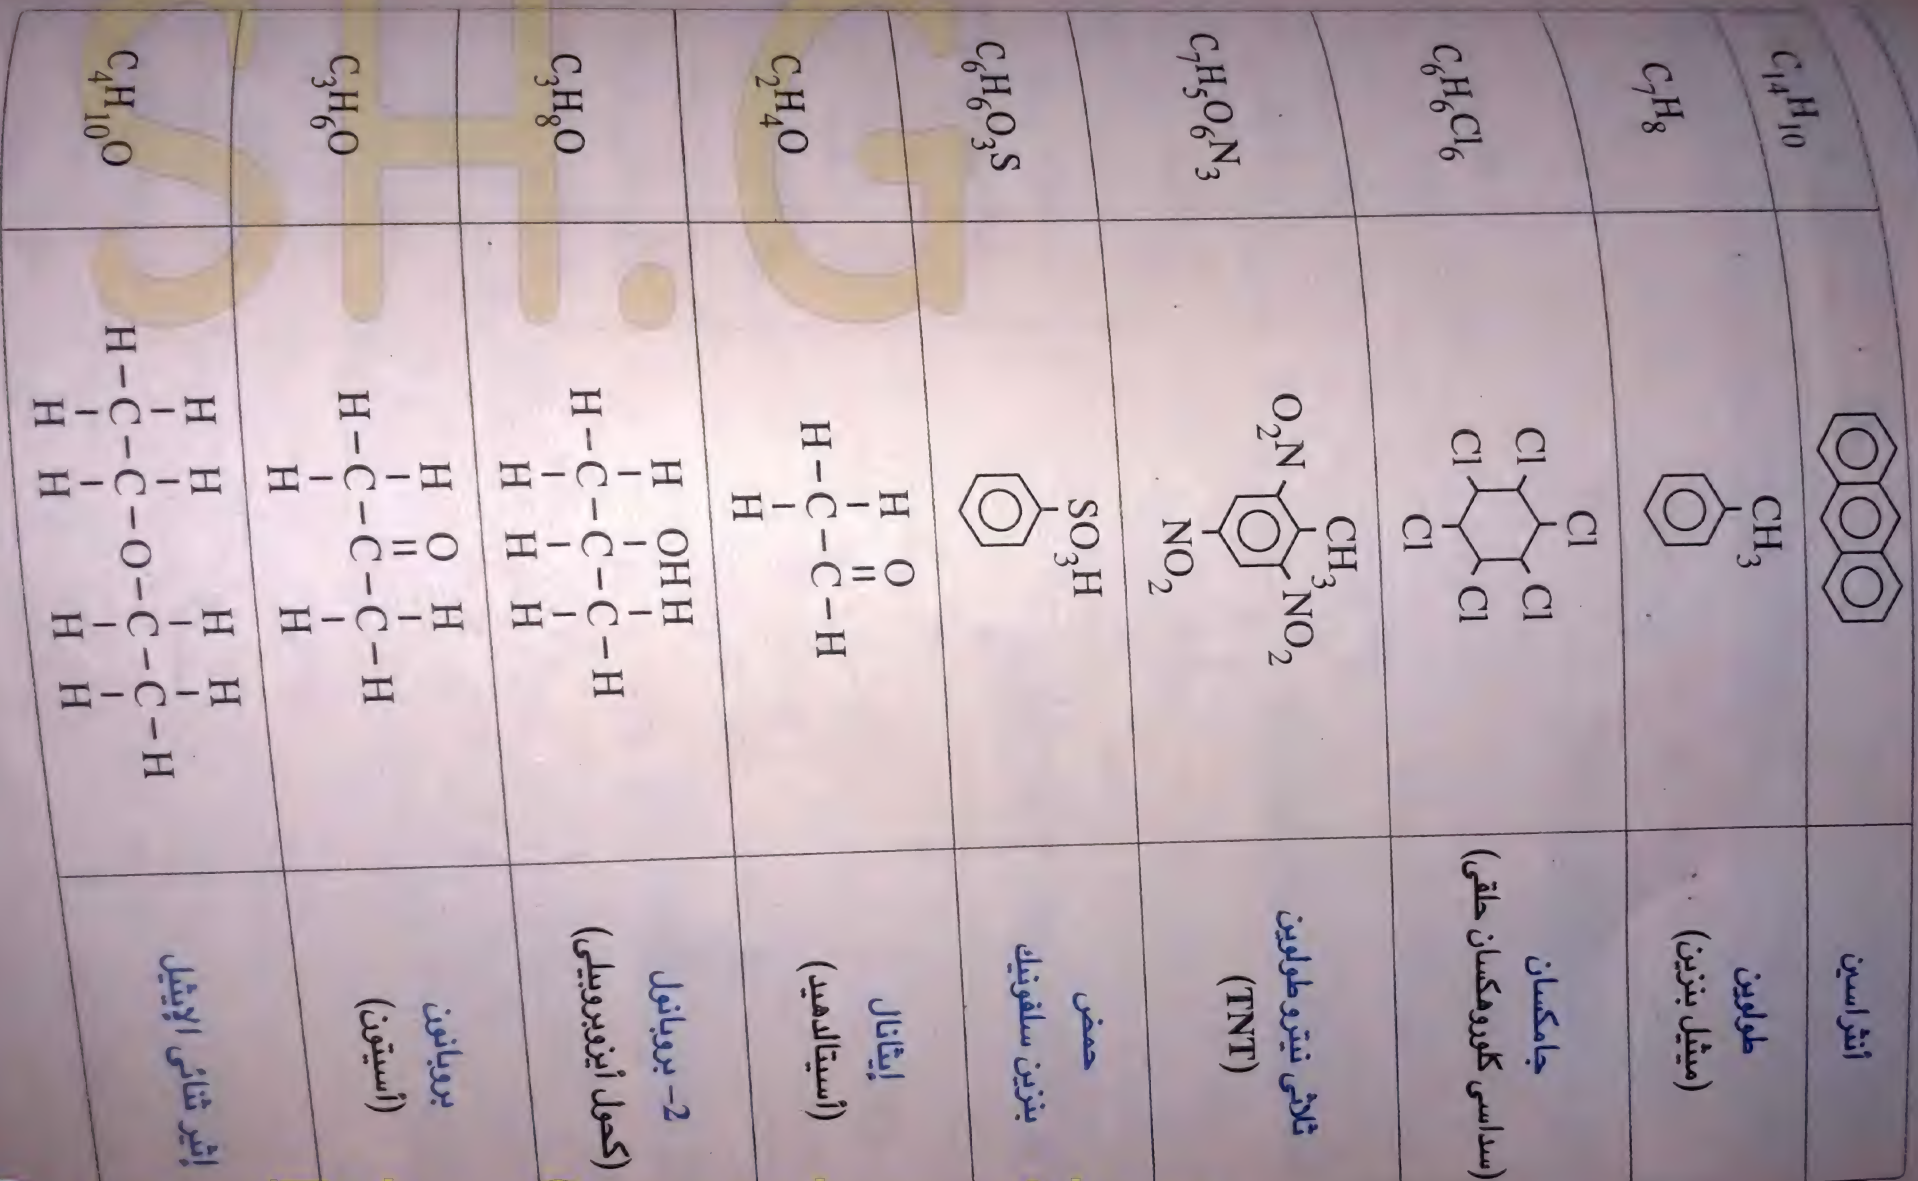 أنثراسين
C₁₄H₁₀
طولوين
(ميثيل بنزين)
CH₃
C₇H₈
جامكسان
(سداسى كلوروهكسان حلقى)
Cl
Cl Cl
Cl Cl
Cl
C₆H₆Cl₆
ثلاثى نيترو طولوين
(TNT)
CH₃
O₂N NO₂
NO₂
C₇H₅O₆N₃
حمض
بنزين سلفونيك
SO₃H
C₆H₆O₃S
إيثانال
(أسيتالدهيد)
H O
H–C–C–H
H
C₂H₄O
2- بروبانول
(كحول أيزوبروبيلى)
H OH H
H–C–C–C–H
H H H
C₃H₈O
بروبانون
(أسيتون)
H O H
H–C–C–C–H
H H
C₃H₆O
إثير ثنائى الإيثيل
H H H H
H–C–C–O–C–C–H
H H H H
C₄H₁₀O